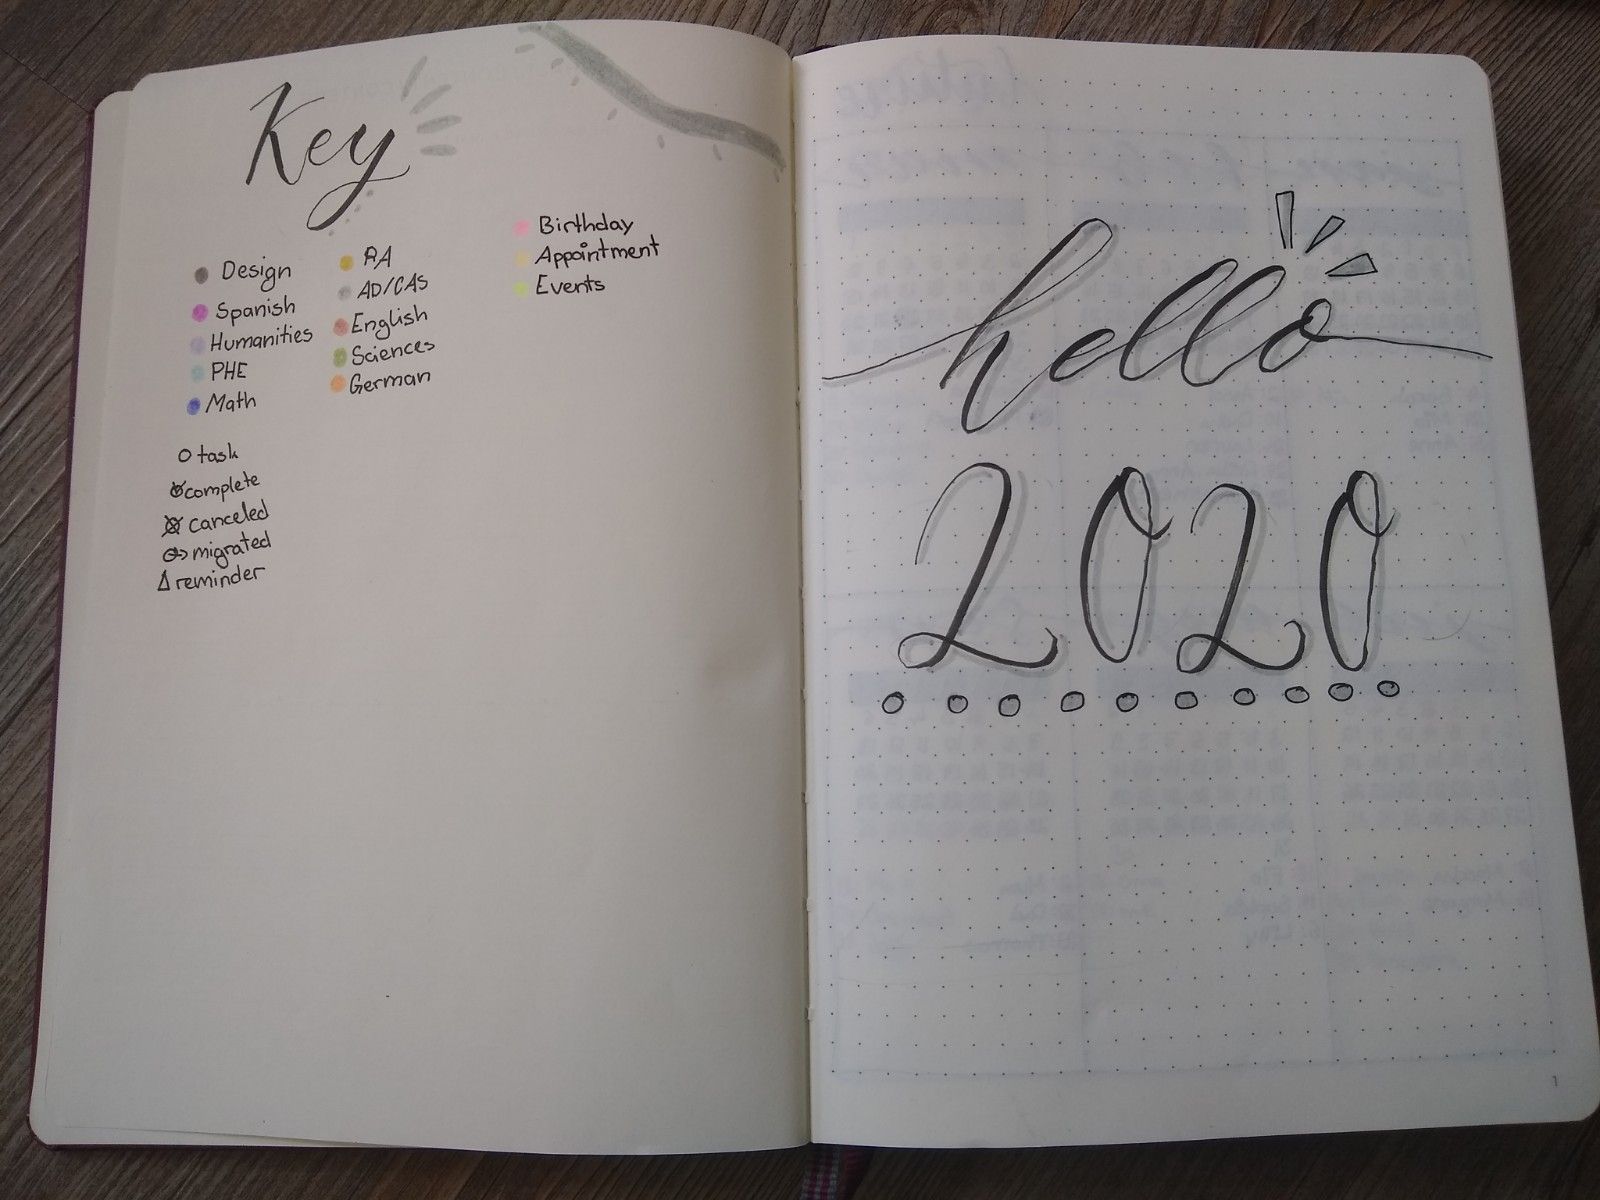 Key
Design
Spanish
Humanities
PHE
Math
RA
AD/CAs
English
Sciences
German
Birthday
Appointment
Events
task
complete
canceled
migrated
reminder
hello
2020
1